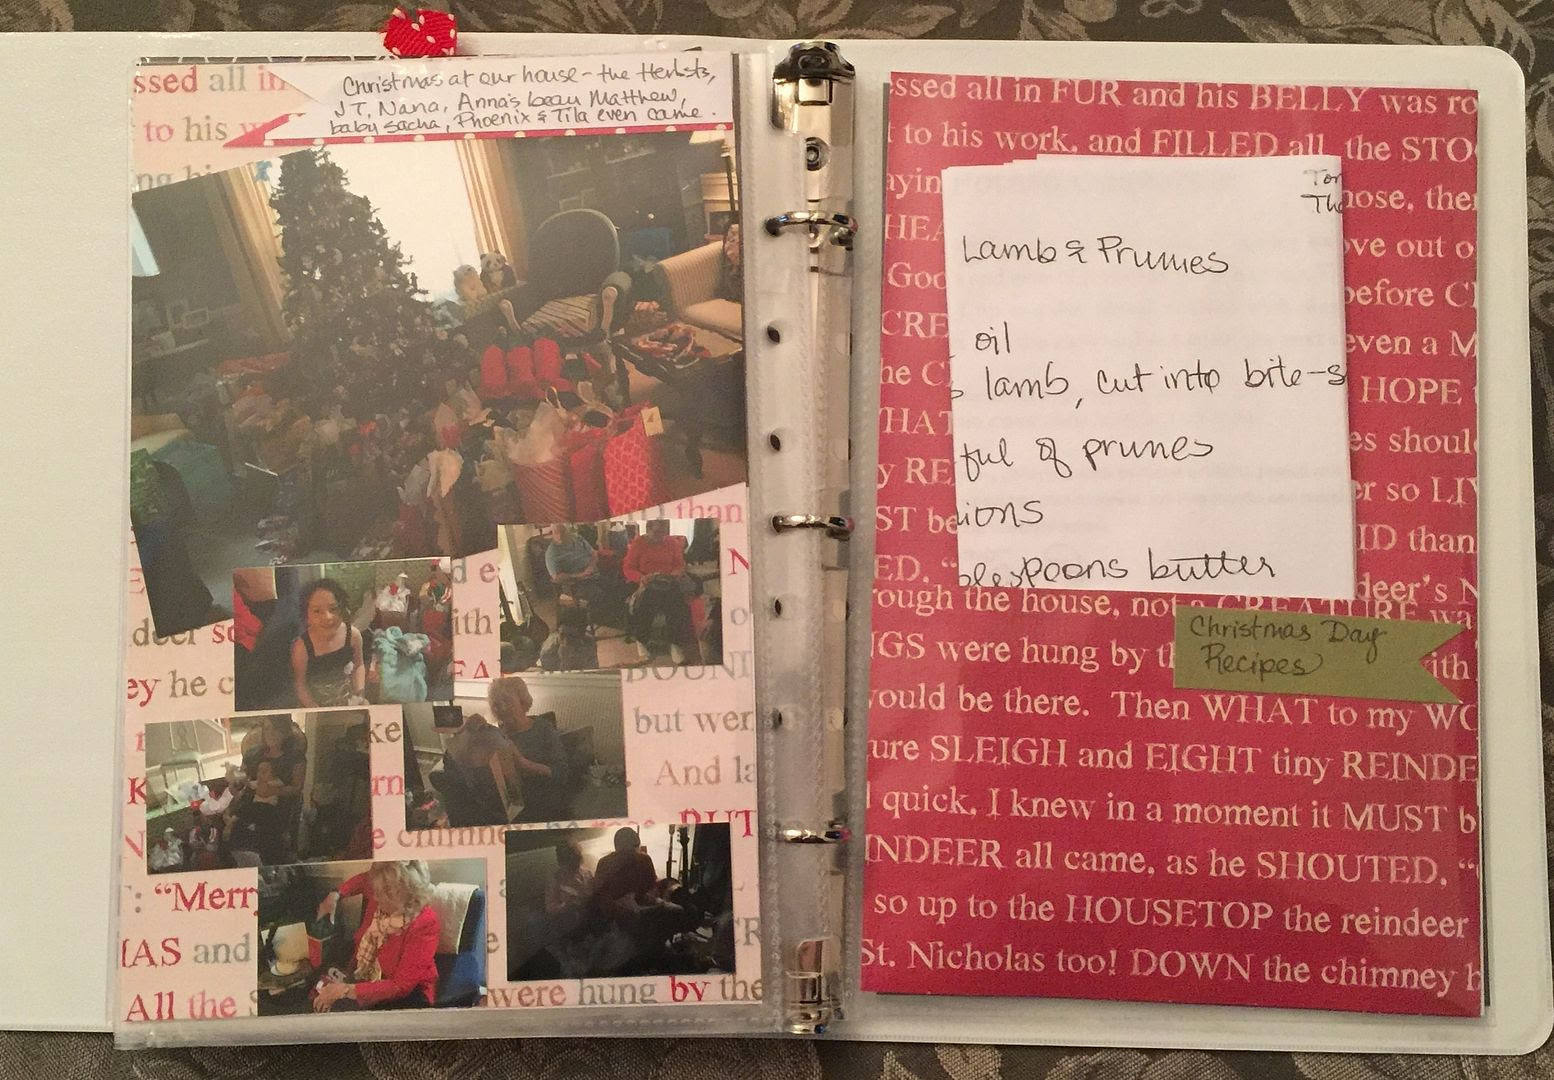 Christmas at our house - the Herbsts,
JT, Nana, Anna's beau Matthew,
baby sacha, Phoenix & Tila even came.
ssed all in
to his
ng hi
than
d e
N
ith
EA
BOUNT
ey he c
but wer
ke
And la
K
rn
e chimney
BUT
N
: “Merr
IAS and
e
CR
All the S
were hung by the
ssed all in FUR and his BELLY was ro
t to his work, and FILLED all the STO
ayin
nose, the
HEA
ove out o
Goo
before C
CRE
even a M
he C
HOPE
WHAT
es shoul
y RE
er so LIV
ST be
ID than
ED. “
deer's N
rough the house, not a CREATURE wa
NGS were hung by th
ith
would be there. Then WHAT to my WO
ture SLEIGH and EIGHT tiny REINDE
d quick, I knew in a moment it MUST b
INDEER all came, as he SHOUTED, “
so up to the HOUSETOP the reindeer
St. Nicholas too! DOWN the chimney h
Tor
The
Lamb & Prunes
oil
lamb, cut into bite-s
ful of prunes
ions
blespoons butter
Christmas Day
Recipes